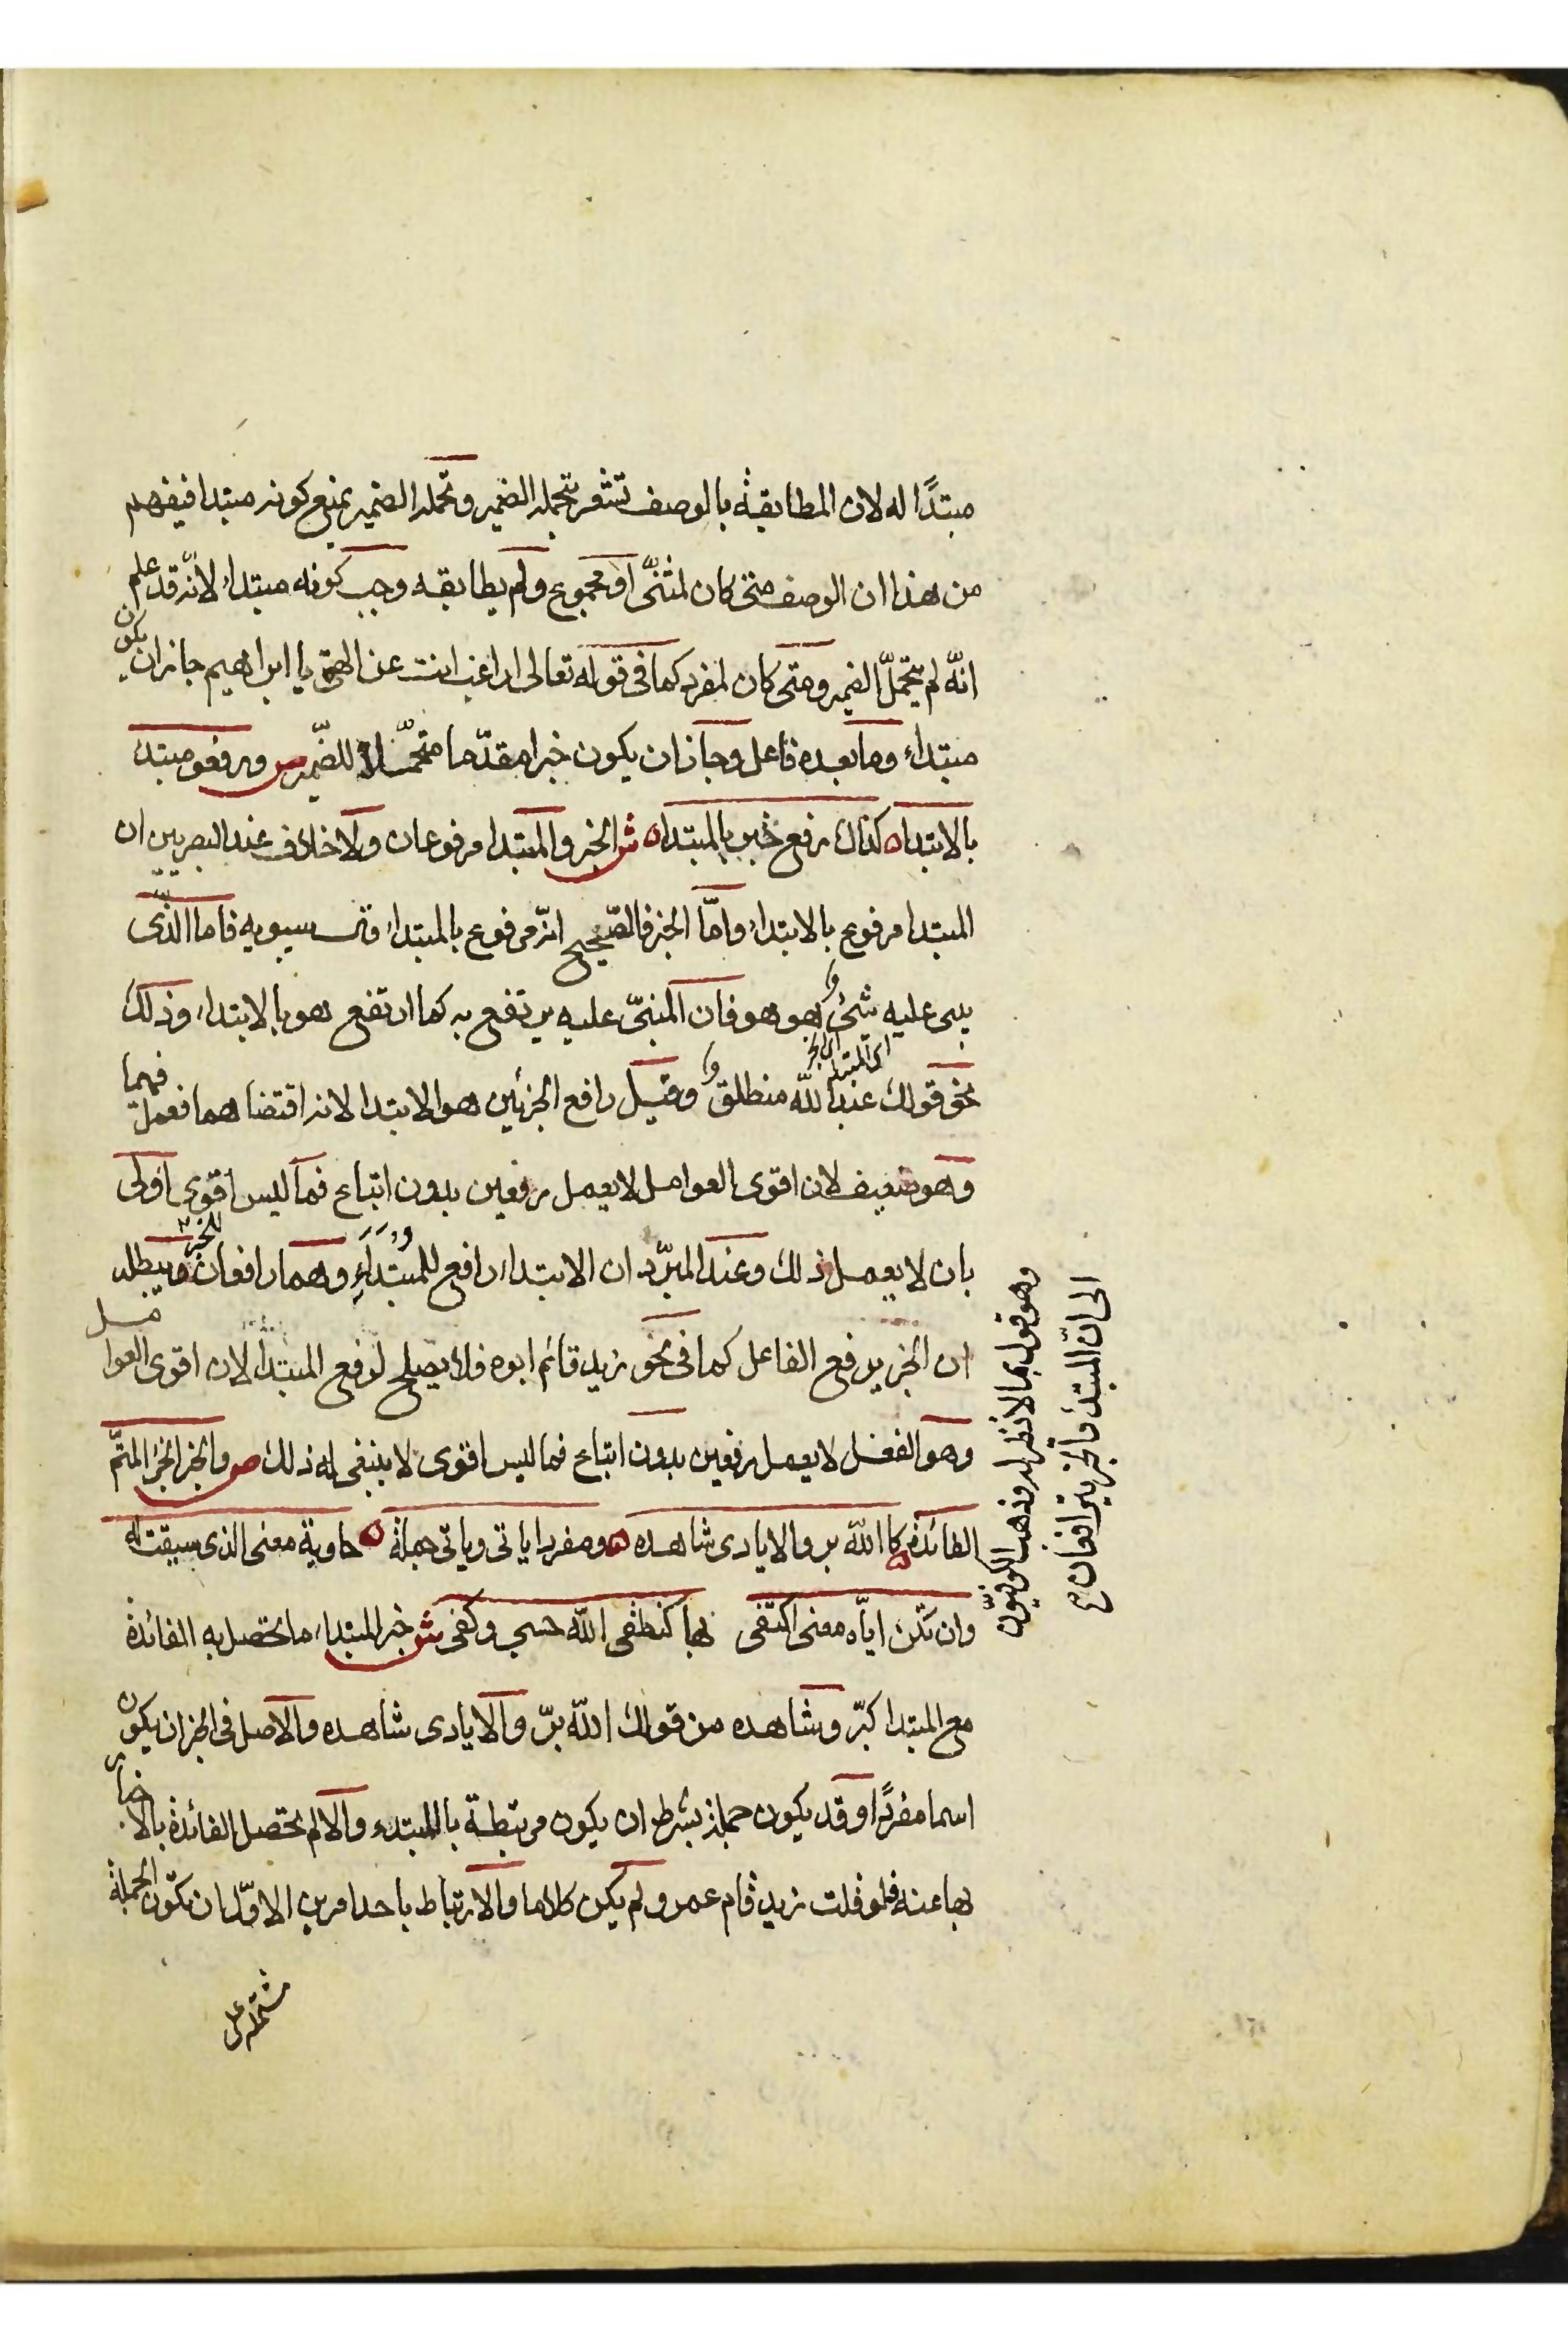 مبتدًا له لان المطابقة بالوصف تشعر بتحمله الضمير وتحمله الضمير يمنع كونه مبتدا فيفهم
من هذا ان الوصف متى كان لمثنّى او مجموع ولم يطابقه وجب كونه مبتداء لانّه قد علم
انّه لم يتحمّل الضمير ومتى كان لمفرد كما فى قوله تعالى اراغب انت عن الهتى يا ابراهيم جاز ان يكون
مبتداء وما بعده فاعل وجاز ان يكون خبرا مقدّما متحمّلا للضّمير ص ورفعو مبتدا
بالابتدا ه كذاك رفع خبر بالمبتدا ه ش الخبر والمبتدا مرفوعان ولا خلاف عند البصريين ان
المبتدا مرفوع بالابتداء وامّا الخبر فالصّحيح انّه مرفوع بالمبتداء قال سيبويه فاما الذّى
يبنى عليه شئ وهو هو فان المبنىّ عليه يرتفع به كما ارتفع هو بالابتداء وذلك
اى المبتدا اى الخبر
نحو قولك عبد الله منطلق وقيل رافع الجزئين هو الابتدا لانه اقتضاهما فعمل فيهما
وهو ضعيف لان اقوى العوامل لا يعمل رفعين بدون اتباع فما ليس اقوى اولى
بان لا يعمل ذلك وعند المبرّد ان الابتداء رافع للمبتداء وهما رافعان للخبر ويبطله
ان الخبر يرفع الفاعل كما فى نحو زيد قائم ابوه فلا يصلح لرفع المبتدا لان اقوى العوامل
وهو الفعل لا يعمل رفعين بدون اتباع فما ليس اقوى لا ينبغى له ذلك ص والخبر الجزء المتمّ
الفائدة كا الله بر والايادى شاهده ه ومفردا ياتى وياتى جملة ه حاوية معنى الذى سيقت له
وان تكن اياّه معنى اكتفى بها كنطقى الله حسبى وكفى ش خبر المبتداء ما تحصل به الفائدة
مع المبتدا كبرّ وشاهده من قولك الله برّ والايادى شاهده والاصل فى الخبر ان يكون
اسما مفردًا وقد يكون جملة بشرط ان يكون مرتبطة بالمبتدء والا لم تحصل الفائدة بالاخبار
بها عنه فلو قلت زيد قام عمرو لم يكن كلاما والارتباط باحد امرين الاوّل ان تكون الجملة
مشتملة على
وهو قول بما لا نظير له وذهب الكوفيّون
الى انّ المبتدء والخبر يترافعان صح